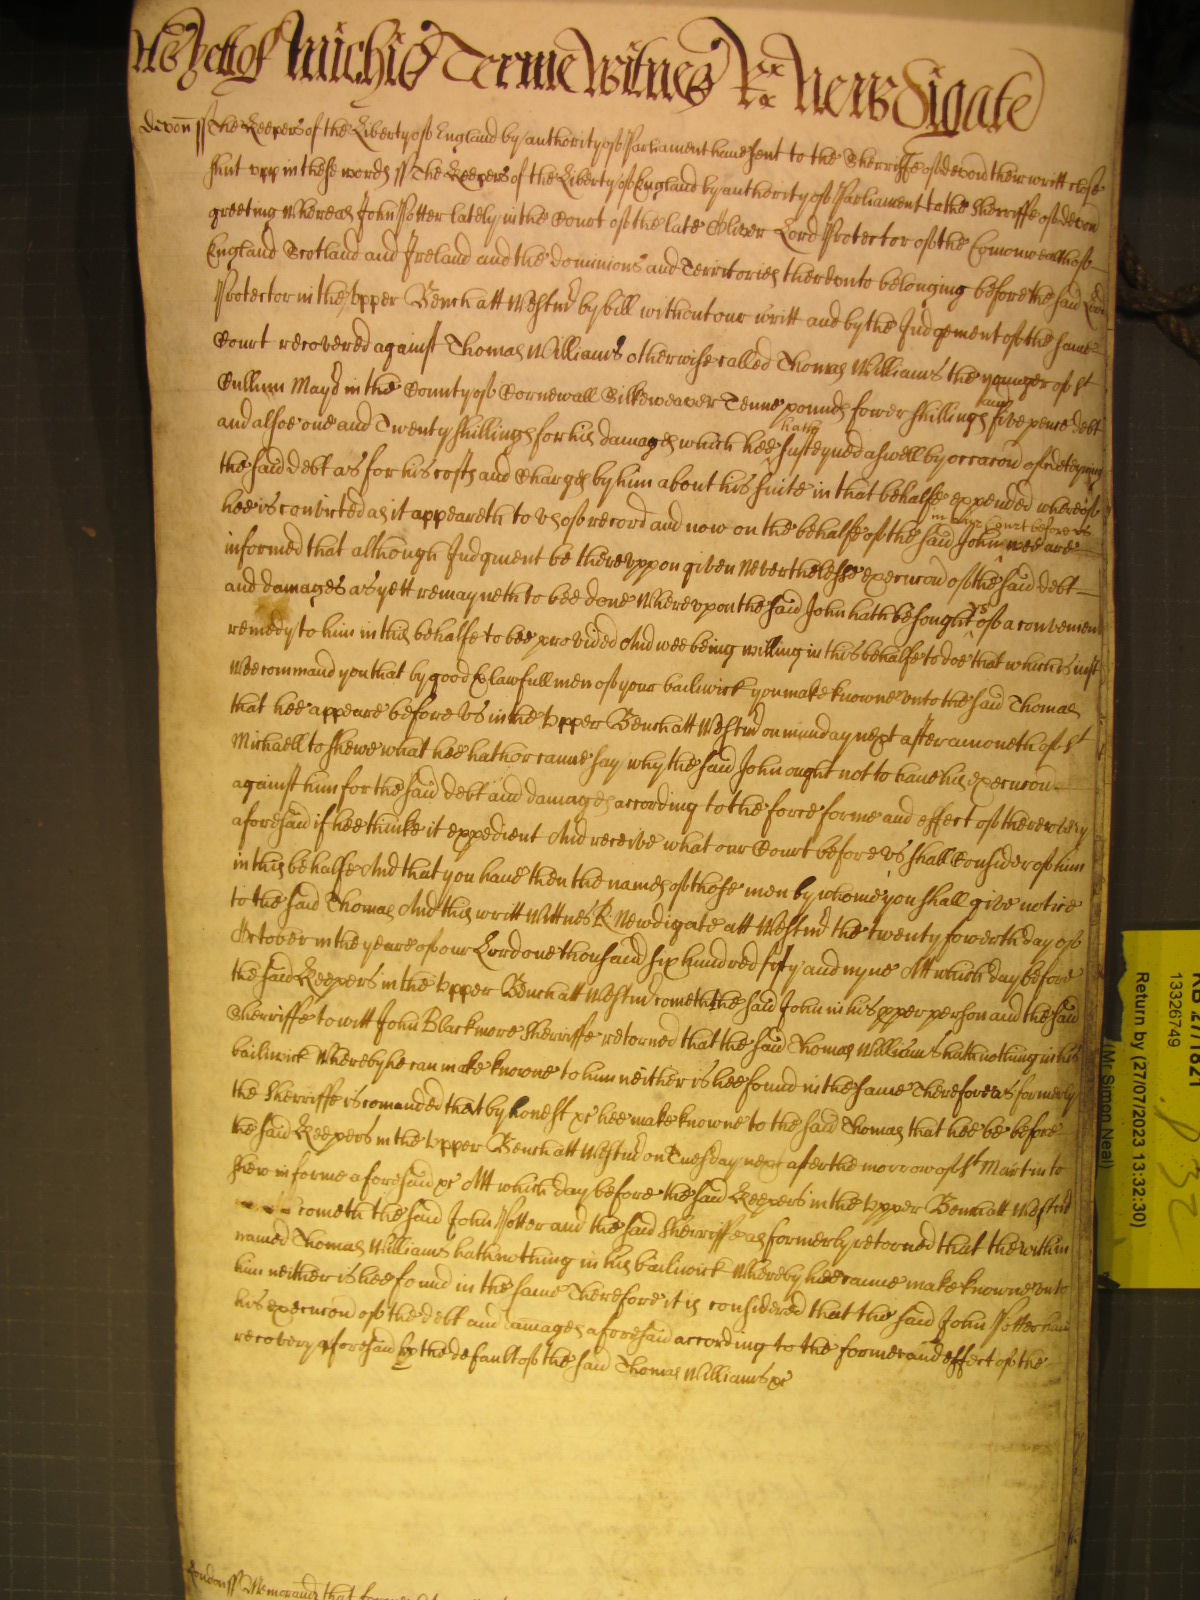 As yett of Michīs Terme Witnes R: Newdigate
Devon ss The Keepers of the Liberty of England by authority of Parliament have sent to the Sherriffe of devon their writt close
shut upp in these words ss The Keepers of the Liberty of England by authority of Parliament to the Sherriffe of devon
greeting Whereas John Potter lately in the Court of the late Oliver Lord Protector of the Comonwealth of
England Scotland and Ireland and the dominions and Territories thereunto belonging before the said Lord
Protector in the Upper Bench att Westmr by bill without our writt and by the Judgement of the same
Court recovered against Thomas Williams otherwise called Thomas Williams the younger of St
Cullum Mayd in the County of Cornewall Silkeweaver Tenne pounds fower shillings and five pence debt
and alsoe one and Twenty shillings for his damages which hee hath susteyned aswell by occacon of deteyning
the said debt as for his costs and Charges by him about his suite in that behalfe expended whereof
hee is convicted as it appeareth to us of record and now on the behalfe of the said John in our Court before us wee are
informed that although Judgment be thereuppon given Neverthelesse execucon of the said debt
and damages as yett remayneth to bee done Whereupon the said John hath besought us of a convenient
remedy to him in this behalfe to bee provided And wee being willing in this behalfe to doe that which is just
Wee command you that by good & lawfull men of your bailiwick you make knowne unto the said Thomas
that hee appeare before us in the Upper Bench att Westmr on munday next after a moneth of St
Michaell to shewe what hee hath or canne say why the said John ought not to have his execucon
against him for the said debt and damages according to the force forme and effect of the recovery
aforesaid if hee thinke it expedient And receive what our Court before us shall Consider of him
in this behalfe And that you have then the names of those men by whome you shall give notice
to the said Thomas And this writt Wittnes R: Newdigate att Westmr the twenty fowerth day of
October in the yeare of our Lord one thousand six hundred fifty and nyne Att which day before
the said Keepers in the Upper Bench att Westmr cometh the said John in his pper person and the said
Sherriffe to witt John Blackmore Sherriffe retorned that the said Thomas Williams hath nothing in his
bailiwick Whereby he can make knowne to him neither is hee found in the same Therefore as formerly
the Sherriffe is comanded that by honest xc hee make knowne to the said Thomas that hee be before
the said Keepers in the Upper Bench att Westmr on Tuesday next after the morrow of St Martin to
shew in forme aforesaid xc Att which day before the said Keepers in the Upper Bench att Westmr
cometh the said John Potter and the said Sherriffe as formerly retorned that the within
named Thomas Williams hath nothing in his bailiwick Whereby hee canne make knowne unto
him neither is hee found in the same Therefore it is considered that the said John Potter have
his execucon of the debt and damages aforesaid according to the forme and effect of the
recovery aforesaid by the default of the said Thomas Williams xc
London ss Memorand that
13326749
Return by (27/07/2023 13:32:30)
(Mr Simon Neal)